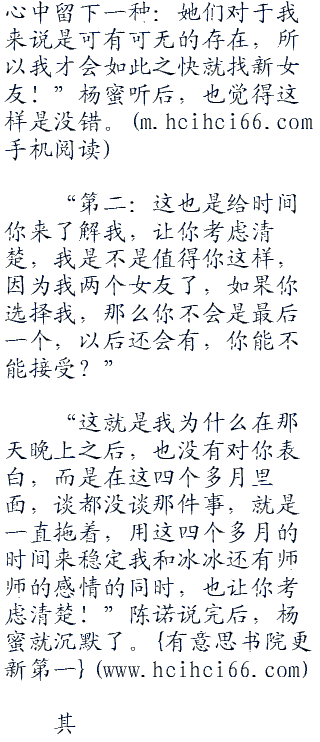 心中留下一种：她们对于我
来说是可有可无的存在，所
以我才会如此之快就找新女
友！”杨蜜听后，也觉得这
样是没错。(m.hcihci66.com
手机阅读)
“第二：这也是给时间
你来了解我，让你考虑清
楚，我是不是值得你这样，
因为我两个女友了，如果你
选择我，那么你不会是最后
一个，以后还会有，你能不
能接受？”
“这就是我为什么在那
天晚上之后，也没有对你表
白，而是在这四个多月里
面，谈都没谈那件事，就是
一直拖着，用这四个多月的
时间来稳定我和冰冰还有师
师的感情的同时，也让你考
虑清楚！”陈诺说完后，杨
蜜就沉默了。{有意思书院更
新第一}(www.hcihci66.com)
其